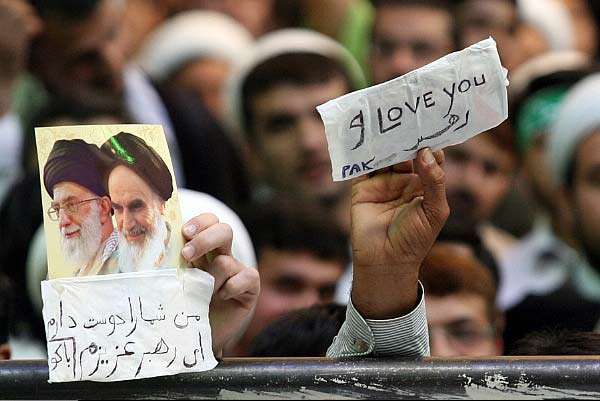 من شما را دوست دارم
ای رهبر عزیزم
I LOVE you
رهبر
PAK